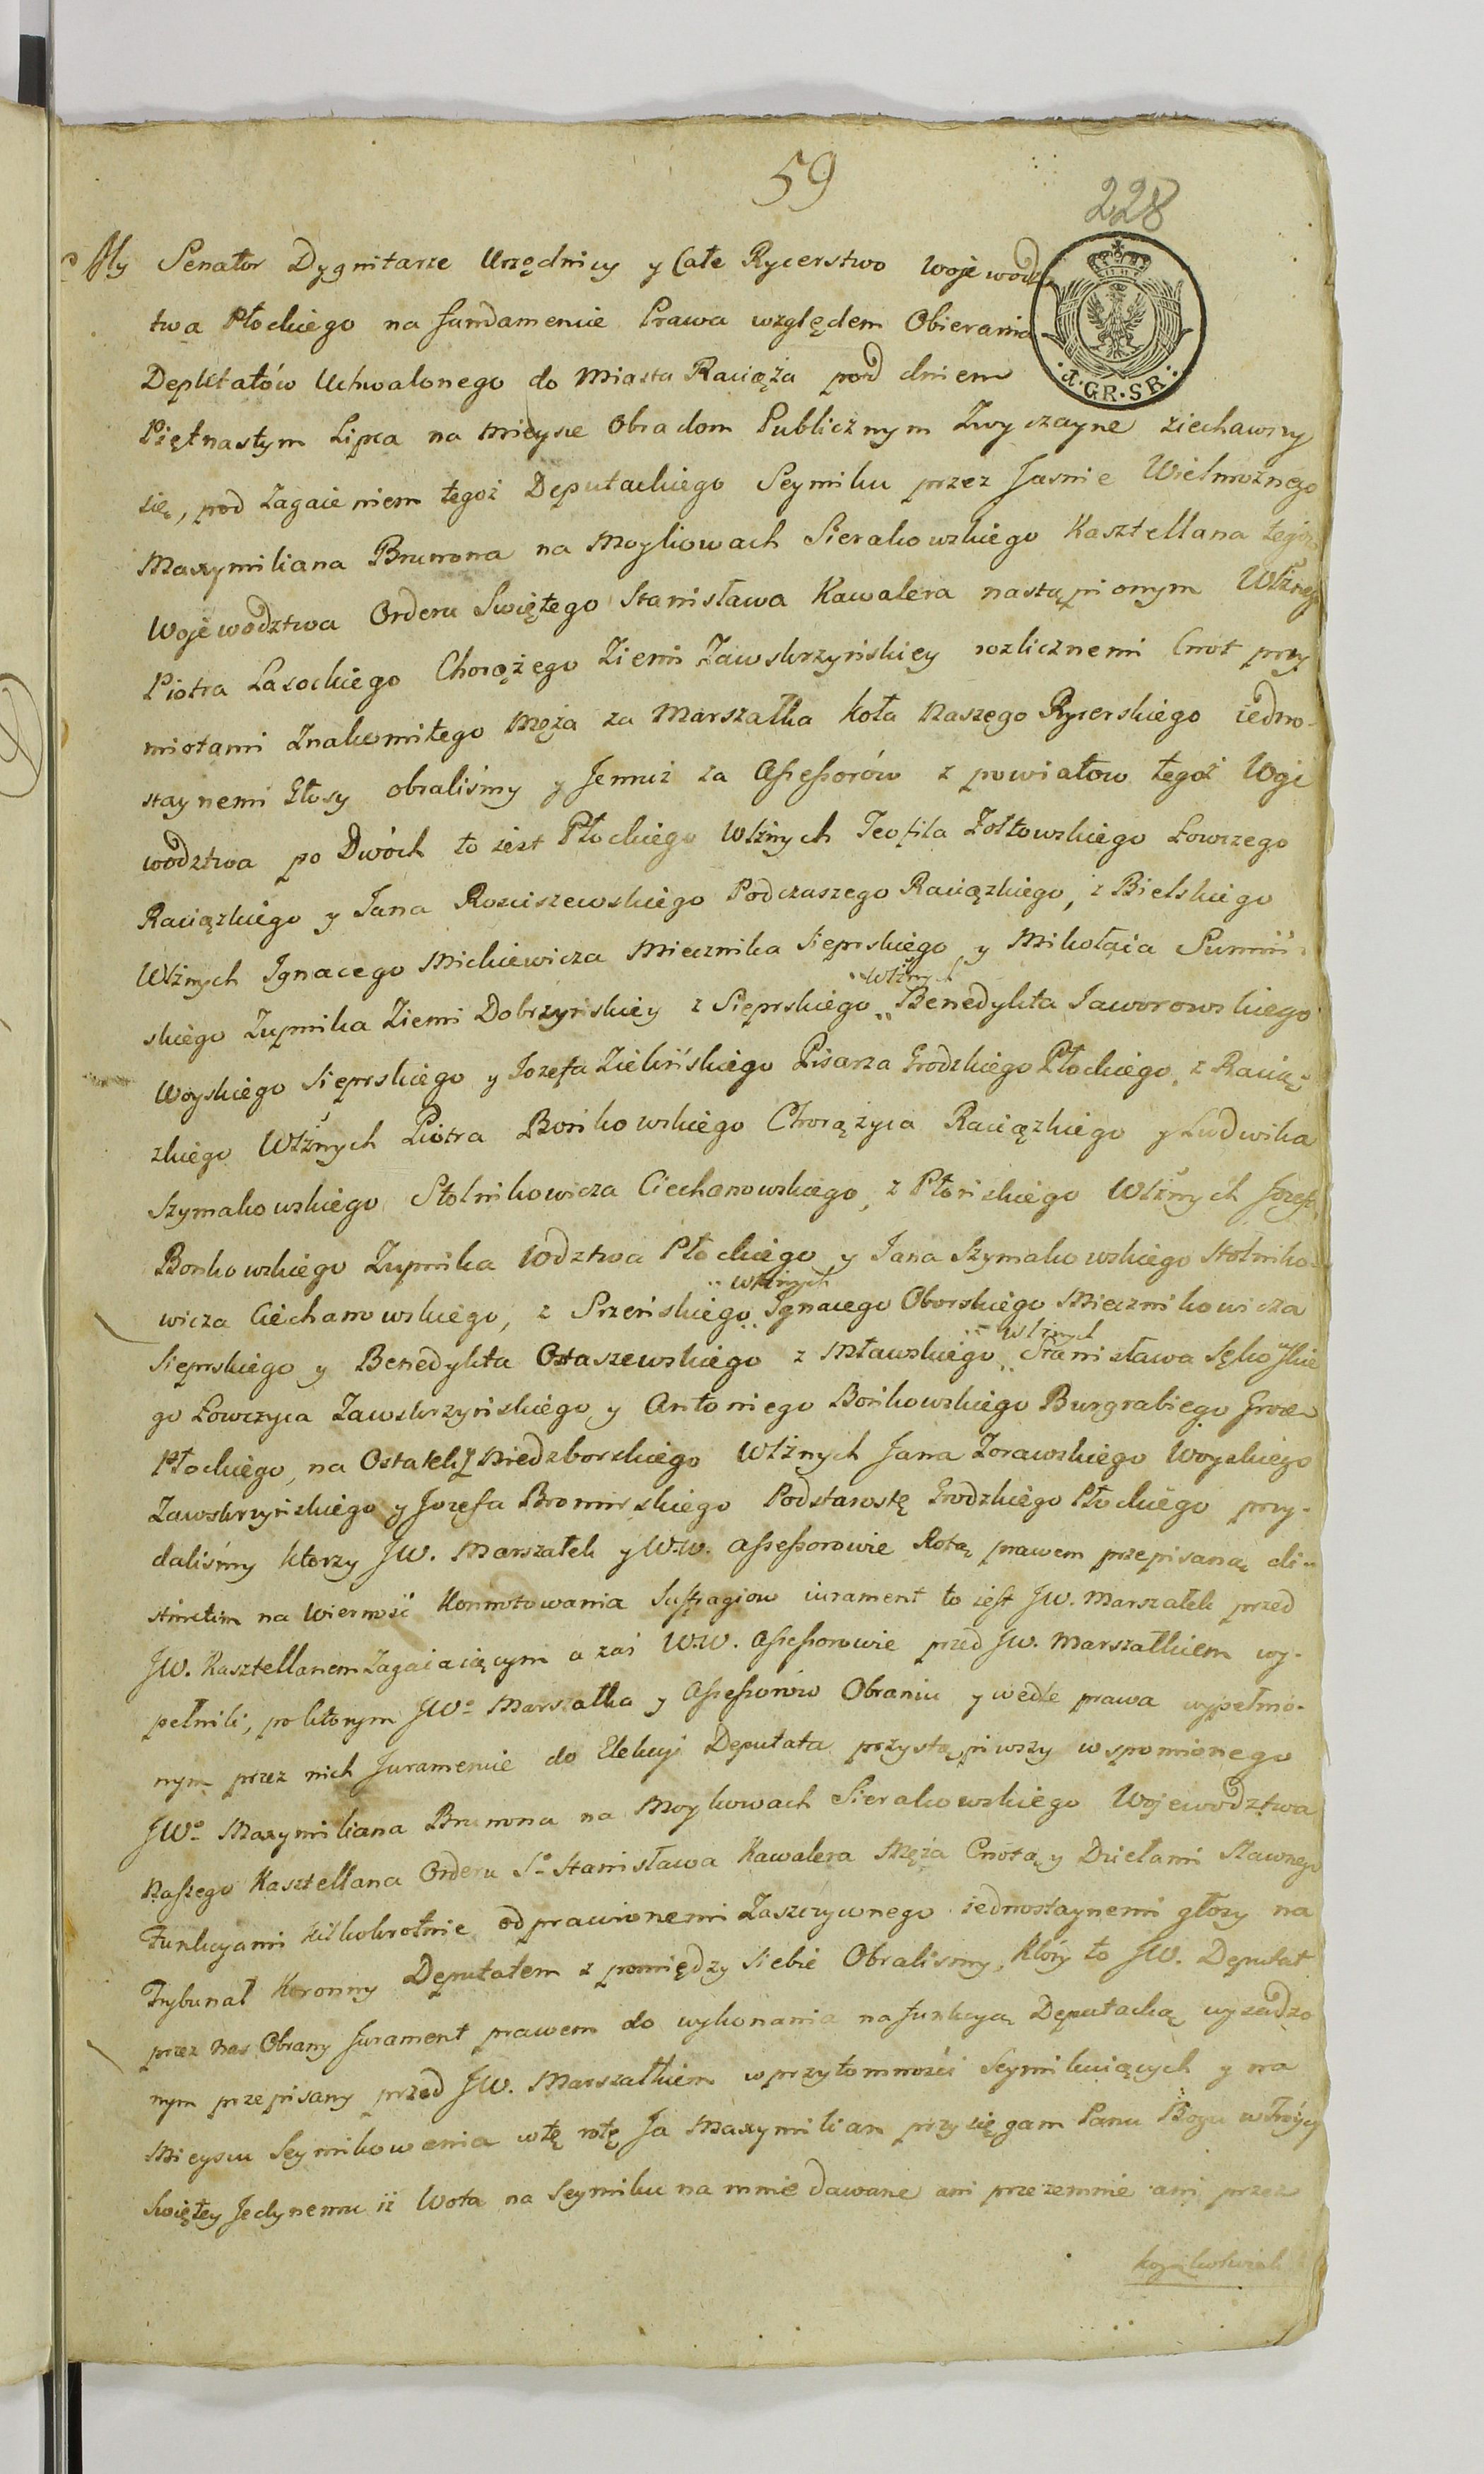 59
228
My Senator Dygnitarze Urzędnicy y Całe Rycerstwo Wojewodz
twa Płockiego na fundamencie Prawa względem Obierania
A. GR. SR.
Deputatów Uchwalonego do Miasta Raciąża pod dniem
Piętnastym Lipca na mieysce Obradom Publicznym Zwyczayne ziechawszy
się, pod zagaieniem tegoż Deputackiego Seymiku przez Jasnie Wielmożnego
Maxymiliana Brunona na Moykowach Sierakowskiego Kasztellana tegoż
Wojewodztwa Orderu Swiętego Stanisława Kawalera nastąpionym Wlżnego
Piotra Lasockiego Chorążego Ziemi Zawskrzyńskiey rozlicznemi Cnot przy
miotami Znakomitego Męża za Marszałka Koła Naszego Rycerskiego iedno-
staynemi Głosy obraliśmy y Jemuż za Assessorów z powiatow tegoż Woje
wodztwa po Dwóch to iest Płockiego Wlżnych Teofila Zołtowskiego Łowczego
Raciązkiego y Jana Rościszewskiego Podczaszego Raciązkiego, z Bielskiego
Wlżnych Ignacego Mickiewicza Miecznika Sieprskiego y Mikołaia Sumiń-
Wlżnych
skiego Zupnika Ziemi Dobrzyńskiey z Sieprskiego Benedykta Jaworowskiego
Woyskiego Sieprskiego y Jozefa Zielińskiego Pisarza Grodzkiego Płockiego, z Racią-
zkiego Wlżnych Piotra Bońkowskiego Chorążyca Raciązkiego y Ludwika
Szymakowskiego Stolnikowicza Ciechanowskiego, z Płońskiego Wlżnych Jozefa
Bońkowskiego Zupnika Wodztwa Płockiego y Jana Szymakowskiego Stolniko-
Wlżnych
wicza Ciechanowskiego, z Szreńskiego Ignacego Oborskiego Miecznikowicza
Wlżnych
Sieprskiego y Benedykta Ostaszewskiego z Mławskiego Stanisława Sękowskie
go Łowczyca Zawskrzyńskiego y Antoniego Bońkowskiego Burgrabiego Grodz
Płockiego, na Ostatek z Niedzborskiego Wlżnych Jana Zorawskiego Woyskiego
Zawskrzyńskiego y Jozefa Bromirskiego Podstarostę Grodzkiego Płockiego przy-
daliśmy ktorzy JW. Marszałek y W.W. Assessorowie Rotą prawem przepisaną di-
stinctim na wierność Konnotowania Suffragiow iurament to iest JW. Marszałek przed
JW. Kasztellanem Zagaiaiącym a zaś W.W. Assessorowie przed JW. Marszałkiem wy-
pełnili, po ktorym JWo Marszałka y Assessorów Obraniu y wedle prawa wypełnio-
nym przez nich Juramencie do Elekcyi Deputata przystąpiwszy wspomionego
JWo Maxymiliana Brunona na Moykowach Sierakowskiego Wojewodztwa
Naszego Kasztellana Orderu So Stanisława Kawalera Męża Cnotą y Dziełami Sławnego
Funkcyami kilkokrotnie odprawionemi Zaszczyconego iednostaynemi głosy na
Trybunał Koronny Deputatem z pomiędzy siebie Obralismy, ktory to JW. Deputat
przez nas Obrany Jurament prawem do wykonania na funkcyą Deputacką wysadzo
nym przepisany przed JW. Marszałkiem w przytomności Seymikuiących y na
Mieyscu Seymikowania w tę rotę Ja Maxymilian przysięgam Panu Bogu w Troycy
Swiętey Jedynemu iż Wota na Seymiku na mnie dawane ani przezemnie ani przez
kogożkolwiek